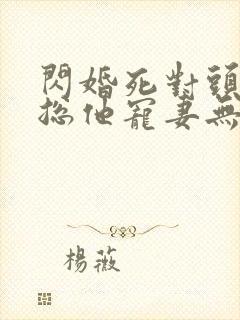 閃婚死對頭
總他寵妻無
楊薇